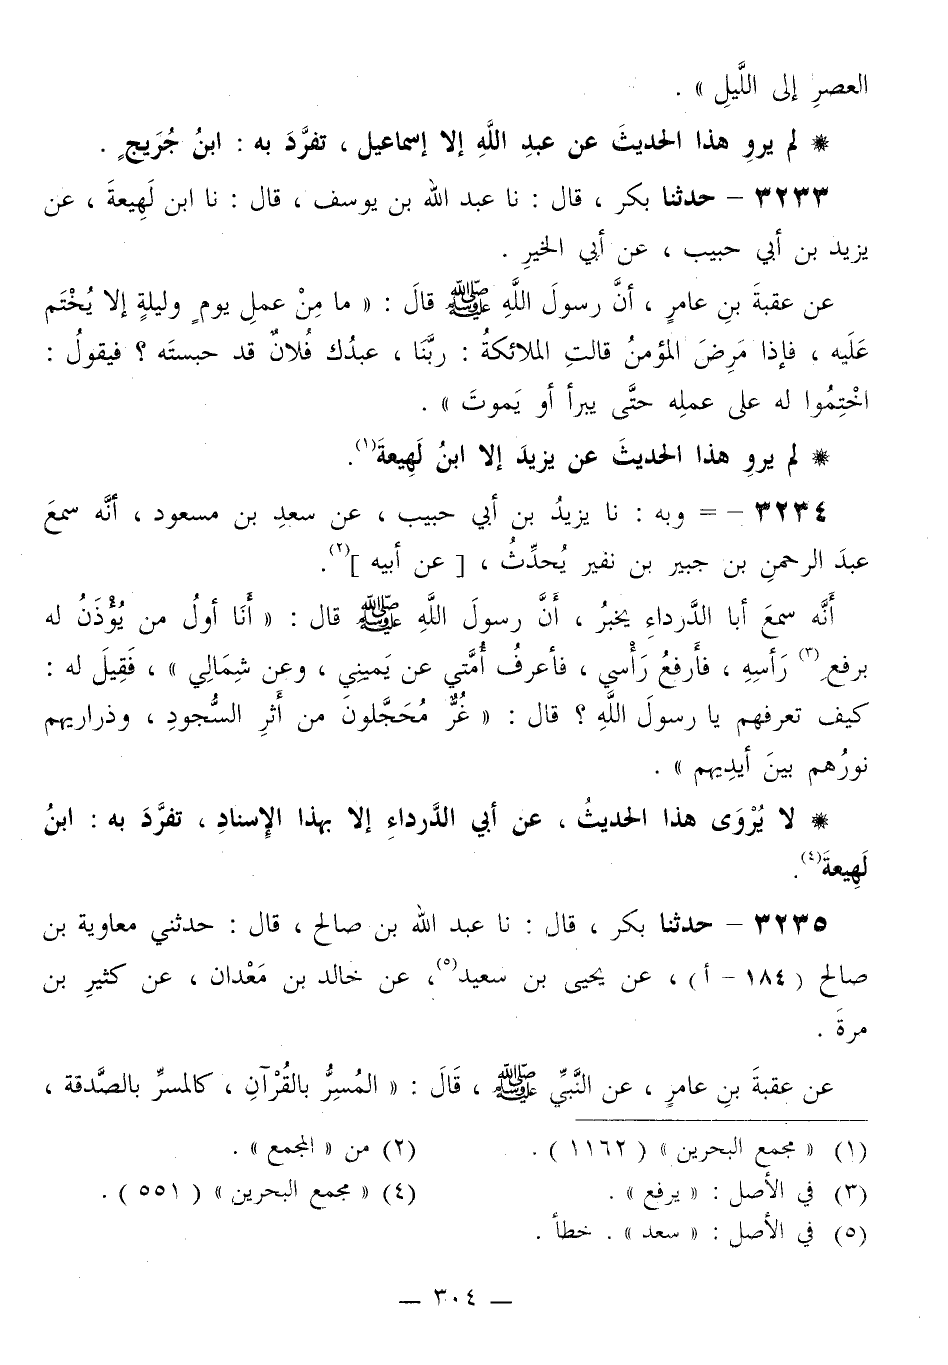 العصرِ إلى اللَّيلِ » .
* لم يروِ هذا الحديثَ عن عبدِ اللَّهِ إلا إسماعيل ، تفرَّدَ به : ابنُ جُرَيجٍ .
٣٢٣٣ – حدثنا بكر ، قال : نا عبد الله بن يوسف ، قال : نا ابن لَهِيعةَ ، عن
يزيد بن أبي حبيب ، عن أبي الخيرِ .
عن عقبةَ بنِ عامرٍ ، أنَّ رسولَ اللَّهِ ﷺ قالَ : « ما مِنْ عملِ يومٍ وليلةٍ إلا يُخْتَم
عَلَيه ، فإذا مَرِضَ المؤمنُ قالتِ الملائكةُ : ربَّنَا ، عبدُك فُلانٌ قد حبستَه ؟ فيقولُ :
اخْتِمُوا له على عملِه حتَّى يبرأ أو يَموتَ » .
* لم يروِ هذا الحديثَ عن يزيدَ إلا ابنُ لَهِيعةَ(١).
٣٢٣٤ – = وبه : نا يزيدُ بن أبي حبيب ، عن سعدِ بن مسعود ، أنَّه سمعَ
عبدَ الرحمنِ بن جبير بن نفير يُحدِّثُ ، [ عن أبيه ](٢).
أَنَّه سمعَ أبا الدَّرداءِ يخبرُ ، أَنَّ رسولَ اللَّهِ ﷺ قال : « أَنَا أولُ من يُؤْذَنُ له
برفعِ(٣) رَأسِهِ ، فأَرفعُ رَأْسي ، فأعرفُ أُمَّتي عن يَميني ، وعن شِمَالِي » ، فَقِيلَ له :
كيف تعرفهم يا رسولَ اللَّهِ ؟ قال : « غُرٌّ مُحَجَّلونَ من أَثرِ السُّجودِ ، وذراريهم
نورُهم بينَ أيدِيهم » .
* لا يُرْوَى هذا الحديثُ ، عن أبي الدَّرداءِ إلا بهذا الإسنادِ ، تفرَّدَ به : ابنُ
لَهِيعةَ(٤).
٣٢٣٥ – حدثنا بكر ، قال : نا عبد الله بن صالح ، قال : حدثني معاوية بن
صالح ( ١٨٤ – أ ) ، عن يحيى بن سعيد(٥)، عن خالد بن مَعْدان ، عن كثيرِ بن
مرةَ .
عن عقبةَ بنِ عامرٍ ، عن النَّبيِّ ﷺ ، قَالَ : « المُسِرُّ بالقُرْآنِ ، كالمسرِّ بالصَّدقة ،
(١) « مجمع البحرين » ( ١١٦٢ ) . (٢) من « المجمع » .
(٣) في الأصل : « يرفع » . (٤) « مجمع البحرين » ( ٥٥١ ) .
(٥) في الأصل : « سعد » . خطأ .
— ٣٠٤ —